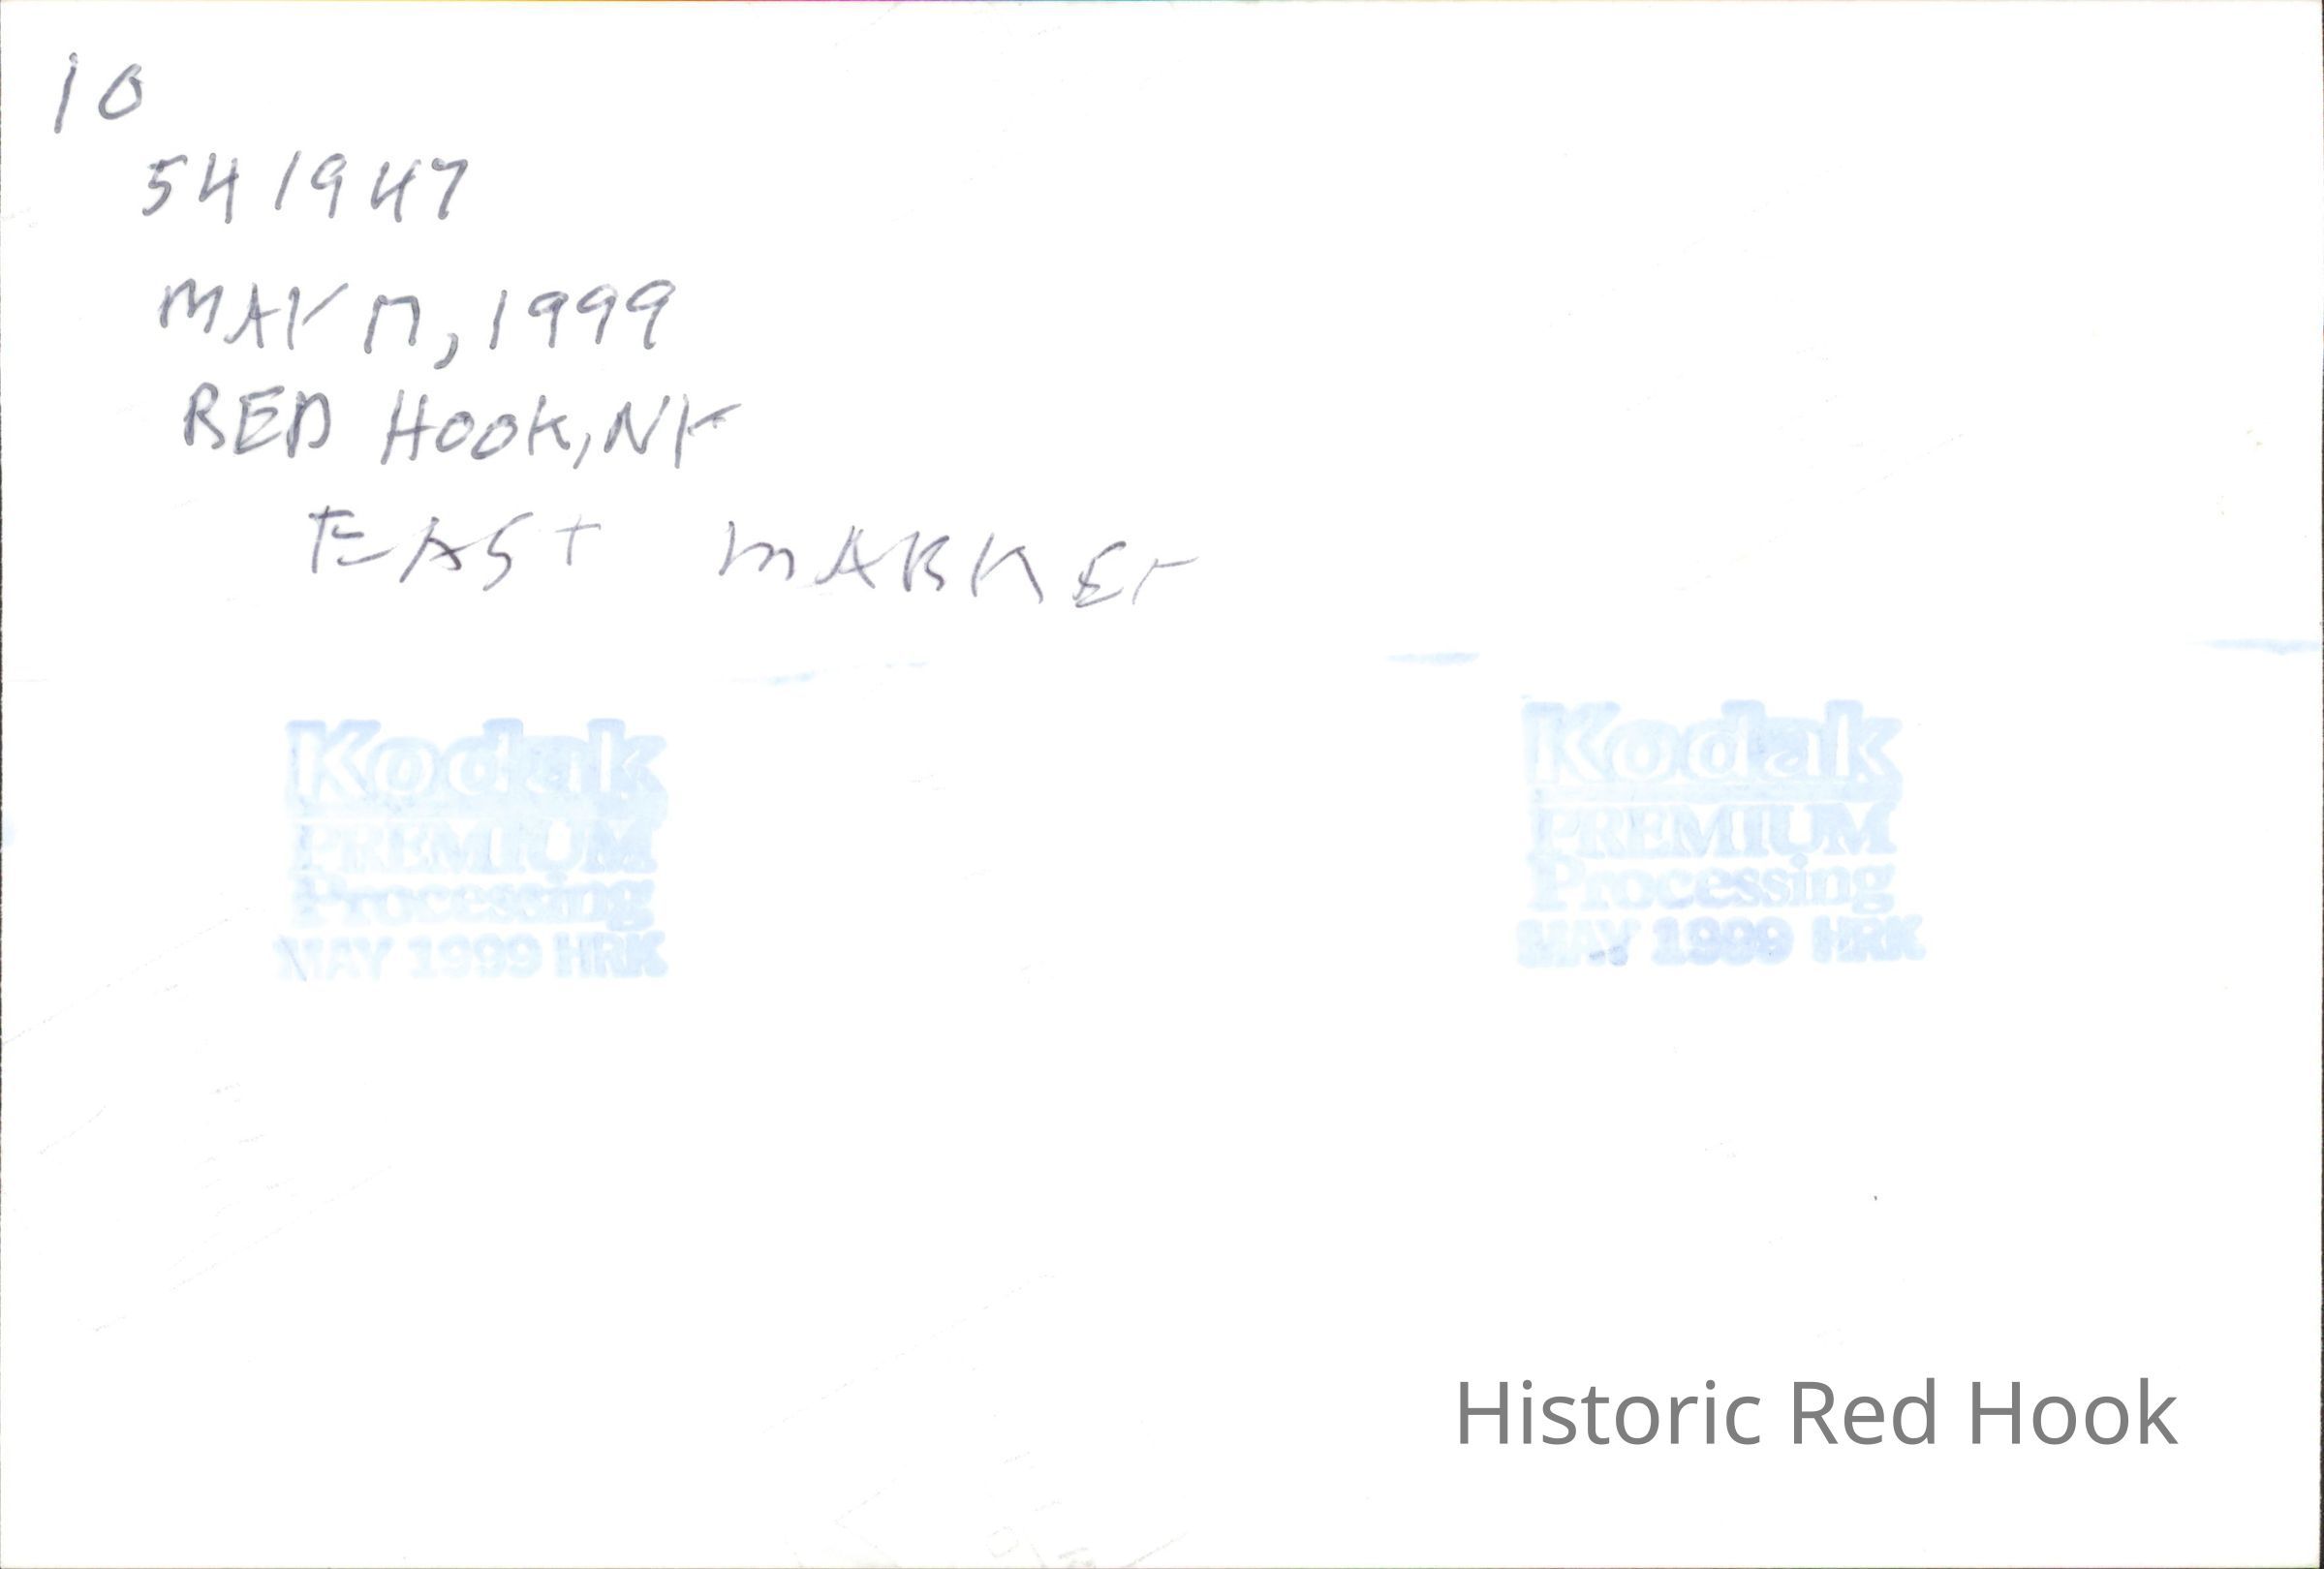 10
541947
MAY 17, 1999
RED HOOK, NY
EAST MARKET
Kodak
PREMIUM
Processing
MAY 1999 HRK
Kodak
PREMIUM
Processing
MAY 1999 HRK
Historic Red Hook